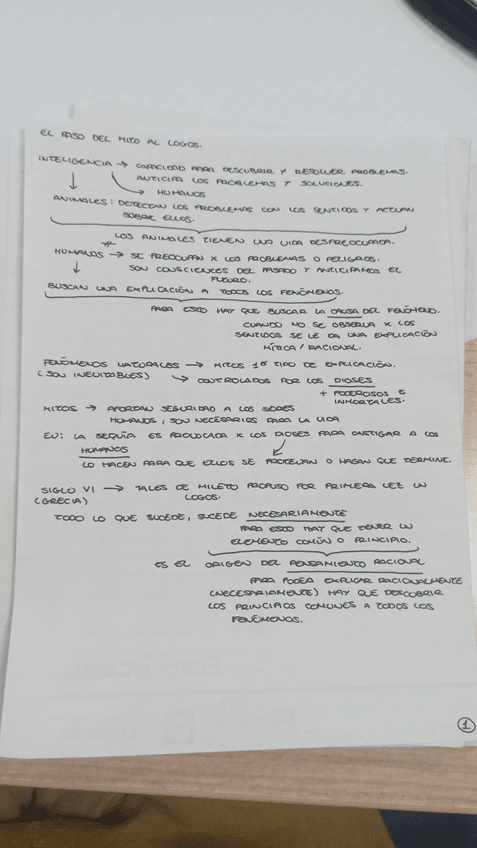 EL PASO DEL MITO AL LOGOS.
INTELIGENCIA → CAPACIDAD PARA DESCUBRIR Y RESOLVER PROBLEMAS.
ANTICIPA LOS PROBLEMAS Y SOLUCIONES.
↓ → HUMANOS
ANIMALES: DETECTAN LOS PROBLEMAS CON LOS SENTIDOS Y ACTUAN
SOBRE ELLOS.
LOS ANIMALES TIENEN UNA VIDA DESPREOCUPADA.
≠
HUMANOS → SE PREOCUPAN X LOS PROBLEMAS O PELIGROS.
↓ SON CONSCIENTES DEL PASADO Y ANTICIPAMOS EL
FUTURO.
BUSCAN UNA EXPLICACIÓN A TODOS LOS FENÓMENOS.
PARA ESTO HAY QUE BUSCAR LA CAUSA DEL FENÓMENO.
CUANDO NO SE OBSERVA X LOS
SENTIDOS SE LE DA UNA EXPLICACIÓN
MÍTICA / RACIONAL.
FENÓMENOS NATURALES → MITOS 1er TIPO DE EXPLICACIÓN.
(SON INEVITABLES) → CONTROLADOS POR LOS DIOSES
+ PODEROSOS E
INMORTALES.
MITOS → APORTAN SEGURIDAD A LOS SERES
HUMANOS, SON NECESARIOS PARA LA VIDA
EJ: LA SEQUÍA ES PROVOCADA X LOS DIOSES PARA CASTIGAR A LOS
HUMANOS
LO HACEN PARA QUE ELLOS SE O HAGAN QUE TERMINE.
SIGLO VI → TALES DE MILETO PROPUSO POR PRIMERA VEZ UN
(GRECIA) LOGOS.
TODO LO QUE SUCEDE, SUCEDE NECESARIAMENTE
PARA ESTO HAY QUE TENER UN
ELEMENTO COMÚN O PRINCIPIO.
ES EL ORIGEN DEL PENSAMIENTO RACIONAL
PARA PODER EXPLICAR RACIONALMENTE
(NECESARIAMENTE) HAY QUE DESCUBRIR
LOS PRINCIPIOS COMUNES A TODOS LOS
FENÓMENOS.
1